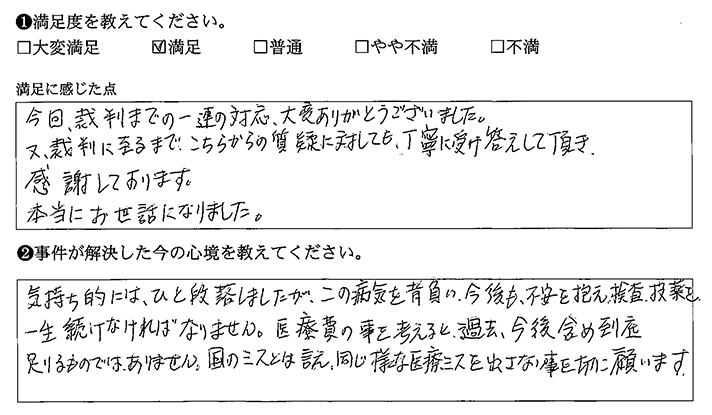 ❶満足度を教えてください。
□大変満足 ☑満足 □普通 □やや不満 □不満
満足に感じた点
今回、裁判までの一連の対応、大変ありがとうございました。
又、裁判に至るまで、こちらからの質疑に対しても、丁寧に受け答えして頂き、
感謝しております。
本当にお世話になりました。
❷事件が解決した今の心境を教えてください。
気持ち的には、ひと段落しましたが、この病気を背負い、今後も、不安を抱え、検査、投薬を、
一生続けなければなりません。医療費の事を考えると、過去、今後含め到底
足りるものではありません。国のミスとは言え、同じ様な医療ミスを出さない事を切に願います。